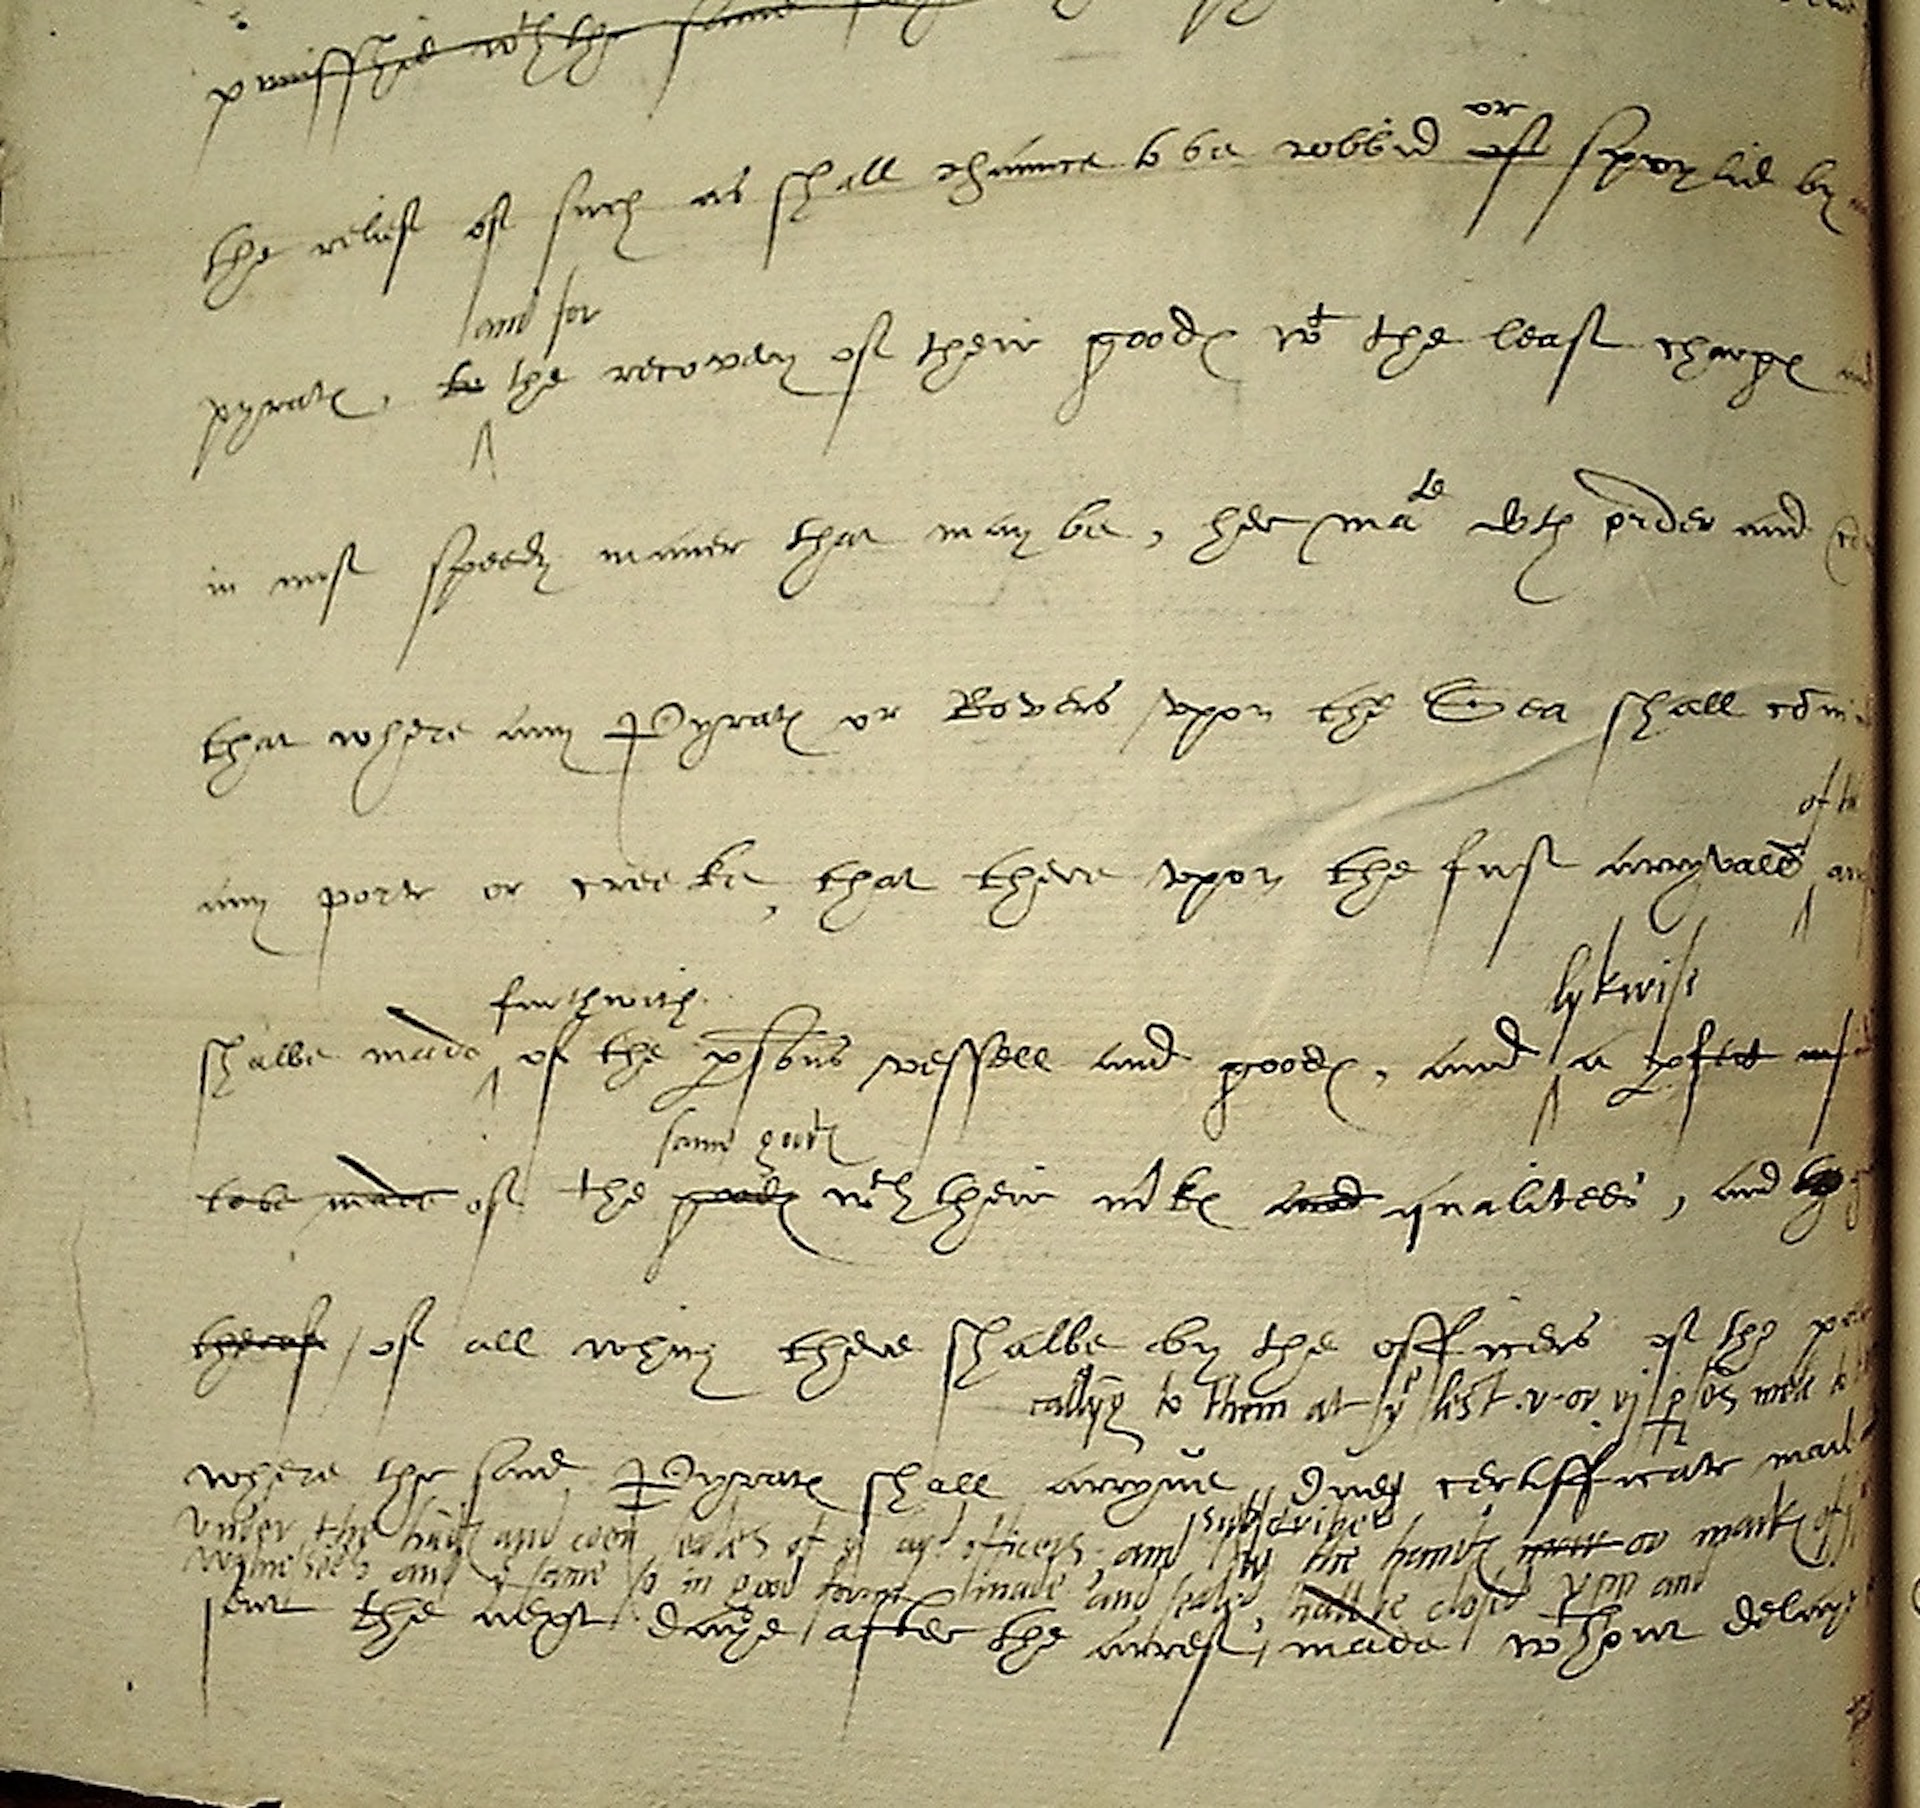 the relief of such as shall chaunce to be robbid or of spoylid by
and for
pyrats, to the recovery of their goods wt the least charges
in most speedy maner that may be, her mate doth order and
that where any Pyrats or Rovers upon the Sea shall com
any porte or creeke, that there upon the first arryvall
lykwise
furthwith
shalbe made of the psons vessell and goods, and a pfect
same goods
to be made of the goods wth their mrks and qualitees, and
therof, of all which there shalbe by the officers of the
callyng to them at ye lest v or vj psons
where the said Pyrats shall arryve, certifficate made
Under the hands and seales of ye officers, and subscribed by the or marks of
wytnesses and ye same so in good forme made and sealed shall be closed upp and
sent the next daye after the arrest made wthout delaye